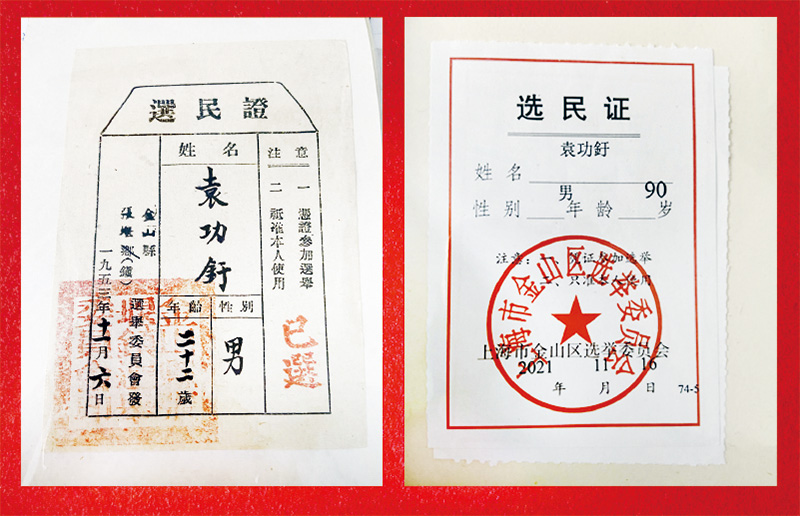 選民證
注意
一 憑證參加選舉
二 祇准本人使用
已選
姓名
袁功釪
性別
男
年齡
二十二歲
金山縣
張堰鄉(鎮)選舉委員會發
一九五三年十一月六日
选民证
姓名 袁功釪
性别 男 年龄 90 岁
注意：一、凭证参加选举
二、只准本人使用
上海市金山区选举委员会
上海市金山区选举委员会
2021年 11月 16日
74-5